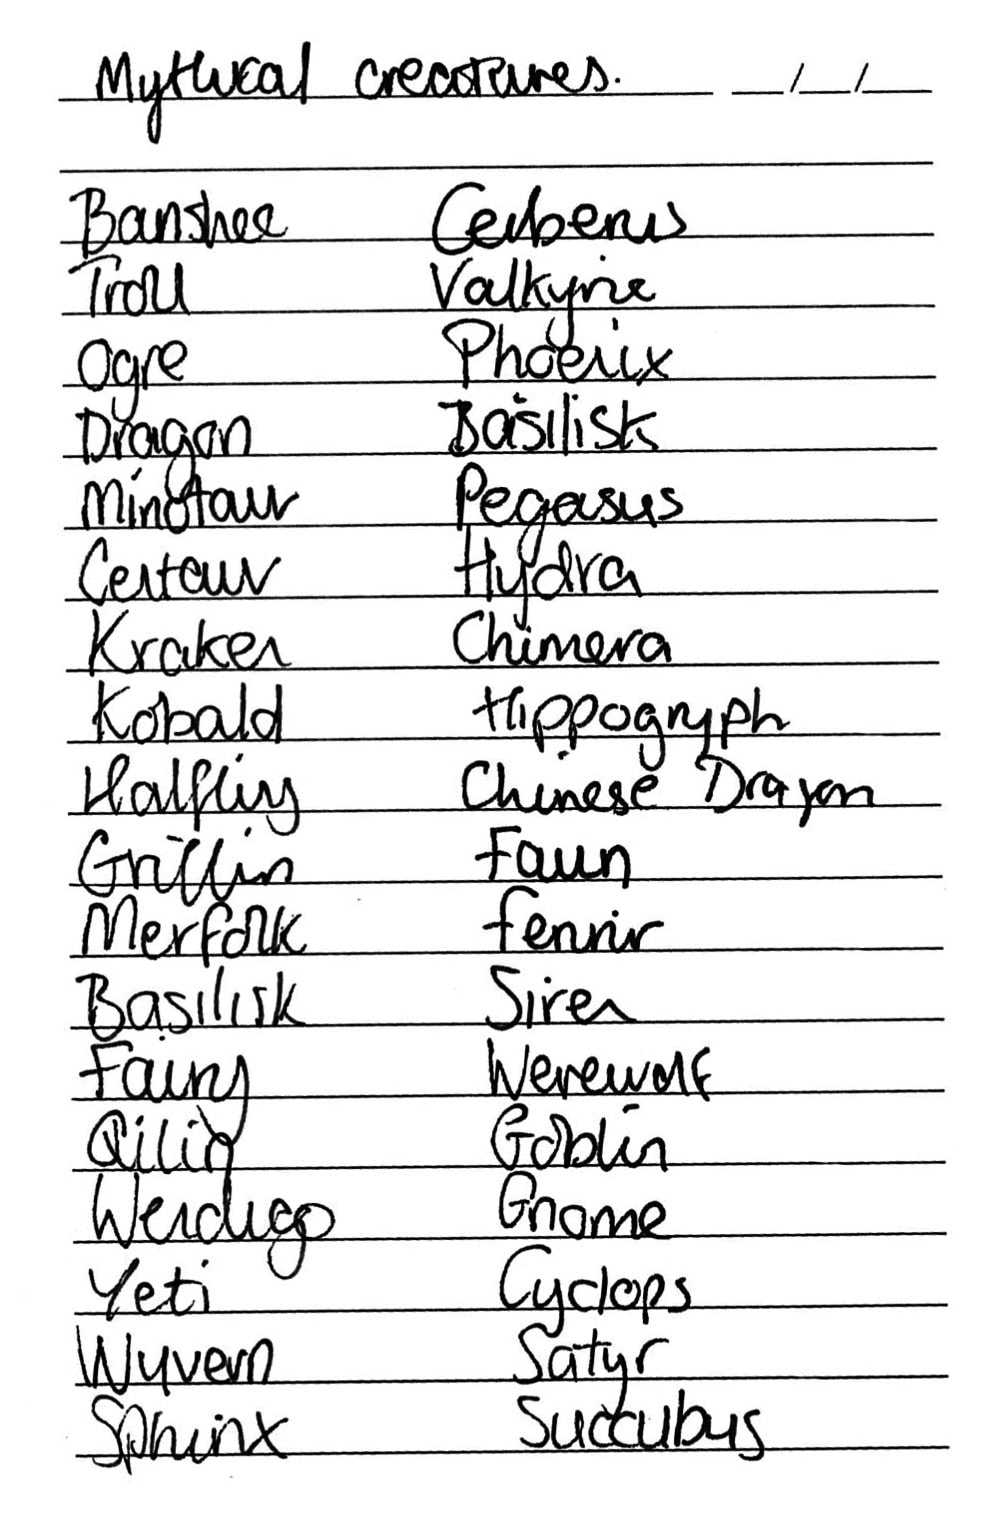 Mythical creatures. __/__/__
Banshee Cerberus
Troll Valkyrie
Ogre Phoenix
Dragon Basilisk
Minotaur Pegasus
Centaur Hydra
Kraken Chimera
Kobald Hippogryph
Halfling Chinese Dragon
Griffin Faun
Merfolk Fenrir
Basilisk Siren
Fairy Werewolf
Qilin Goblin
Wendigo Gnome
Yeti Cyclops
Wyvern Satyr
Sphinx Succubus